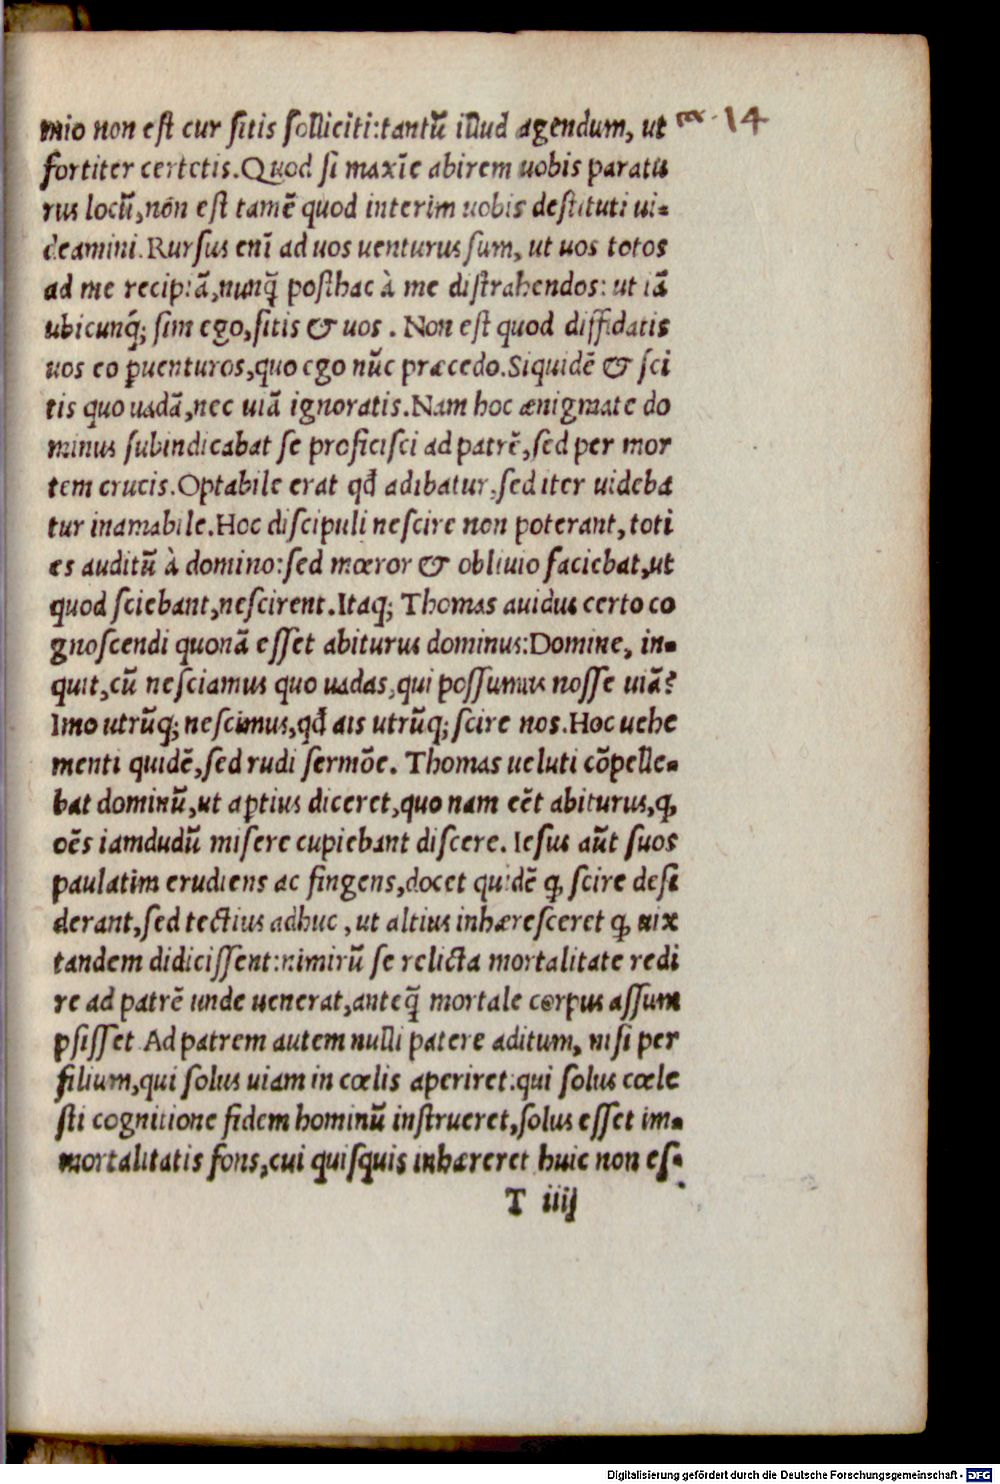 mio non est cur sitis solliciti:tantū illud agendum, ut
14
fortiter certetis.Quod si maxīe abirem uobis paratu
rus locū,non est tamē quod interim uobis destituti ui-
deamini.Rursus enī ad uos uenturus sum, ut uos totos
ad me recipiā,nunq̄ posthac à me distrahendos: ut iā
ubicunq; sim ego,sitis & uos . Non est quod diffidatis
uos eo ꝑuenturos,quo ego nūc præcedo.Siquidē & sci
tis quo uadā,nec uiā ignoratis.Nam hoc ænigmate do
minus subindicabat se proficisci ad patrē,sed per mor
tem crucis.Optabile erat qđ adibatur,sed iter uideba
tur inamabile.Hoc discipuli nescire non poterant,toti
es auditū à domino:sed mœror & obliuio faciebat,ut
quod sciebant,nescirent.Itaq; Thomas auidus certo co
gnoscendi quonā esset abiturus dominus:Domine, in-
quit,cū nesciamus quo uadas,qui possumus nosse uiā?
Imo utrūq; nescimus,qđ ais utrūq; scire nos.Hoc uehe
menti quidē,sed rudi sermōe. Thomas ueluti cōpelle-
bat dominū,ut aptius diceret,quo nam eēt abiturus,ꝙ
oēs iamdudū misere cupiebant discere. Iesus aūt suos
paulatim erudiens ac fingens,docet quidē ꝙ scire desi
derant,sed tectius adhuc , ut altius inhæresceret ꝙ uix
tandem didicissent:nimirū se relicta mortalitate redi
re ad patrē unde uenerat,anteq̄ mortale corpus assum
psisset Ad patrem autem nulli patere aditum, nisi per
filium,qui solus uiam in cœlis aperiret:qui solus cœle
sti cognitione fidem hominū instrueret,solus esset im-
mortalitatis fons,cui quisquis inhæreret huic non es-
T iiij
Digitalisierung gefördert durch die Deutsche Forschungsgemeinschaft - DFG